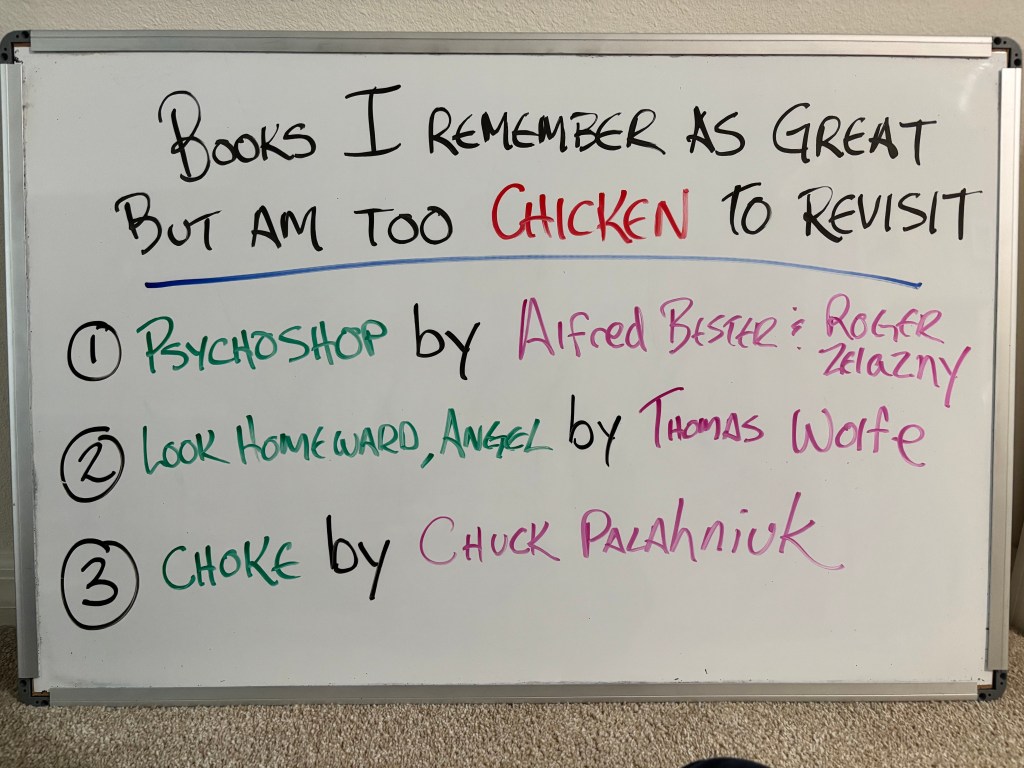 BOOKS I REMEMBER AS GREAT
BUT AM TOO CHICKEN TO REVISIT
① PSYCHOSHOP by Alfred BESTER & ROGER
ZElAZNY
② LOOK HOMEWARD, ANGEL by THOMAS Wolfe
③ CHOKE by CHUCK PALAhniuK